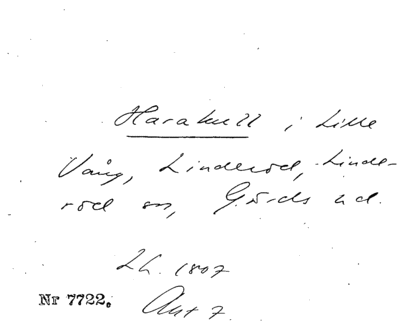 Harakull i Lille
Vång, Linderöd, Linde-
röd sn, Gärds hd.
Lh. 1807
Akt 7
Nr 7722.